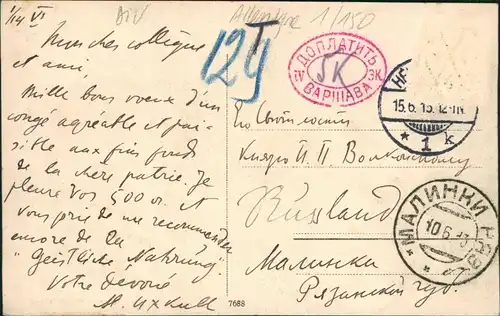 1/14 VI
Mon cher collègue
et ami,
Mille bons voeux d'un
congé agréable et pai-
sible aux fins fonds
de la chère patrie. Je
pleure vos 500 r. et
vous prie de me recommander
encore de la
"Geistliche Nahrung".
Votre dévoué
M. Uxkull
1/150
12 T 9
ДОПЛАТИТЬ
5К
ЭК.
ВАРШАВА
15.6.13.12-1N.
* 1 k
Его Сиятельству
Князю П. П. Волконскому
Russland
Малинки
Рязанской губ.
МАЛИНКИ РЯЗ.
10.6.13
7688